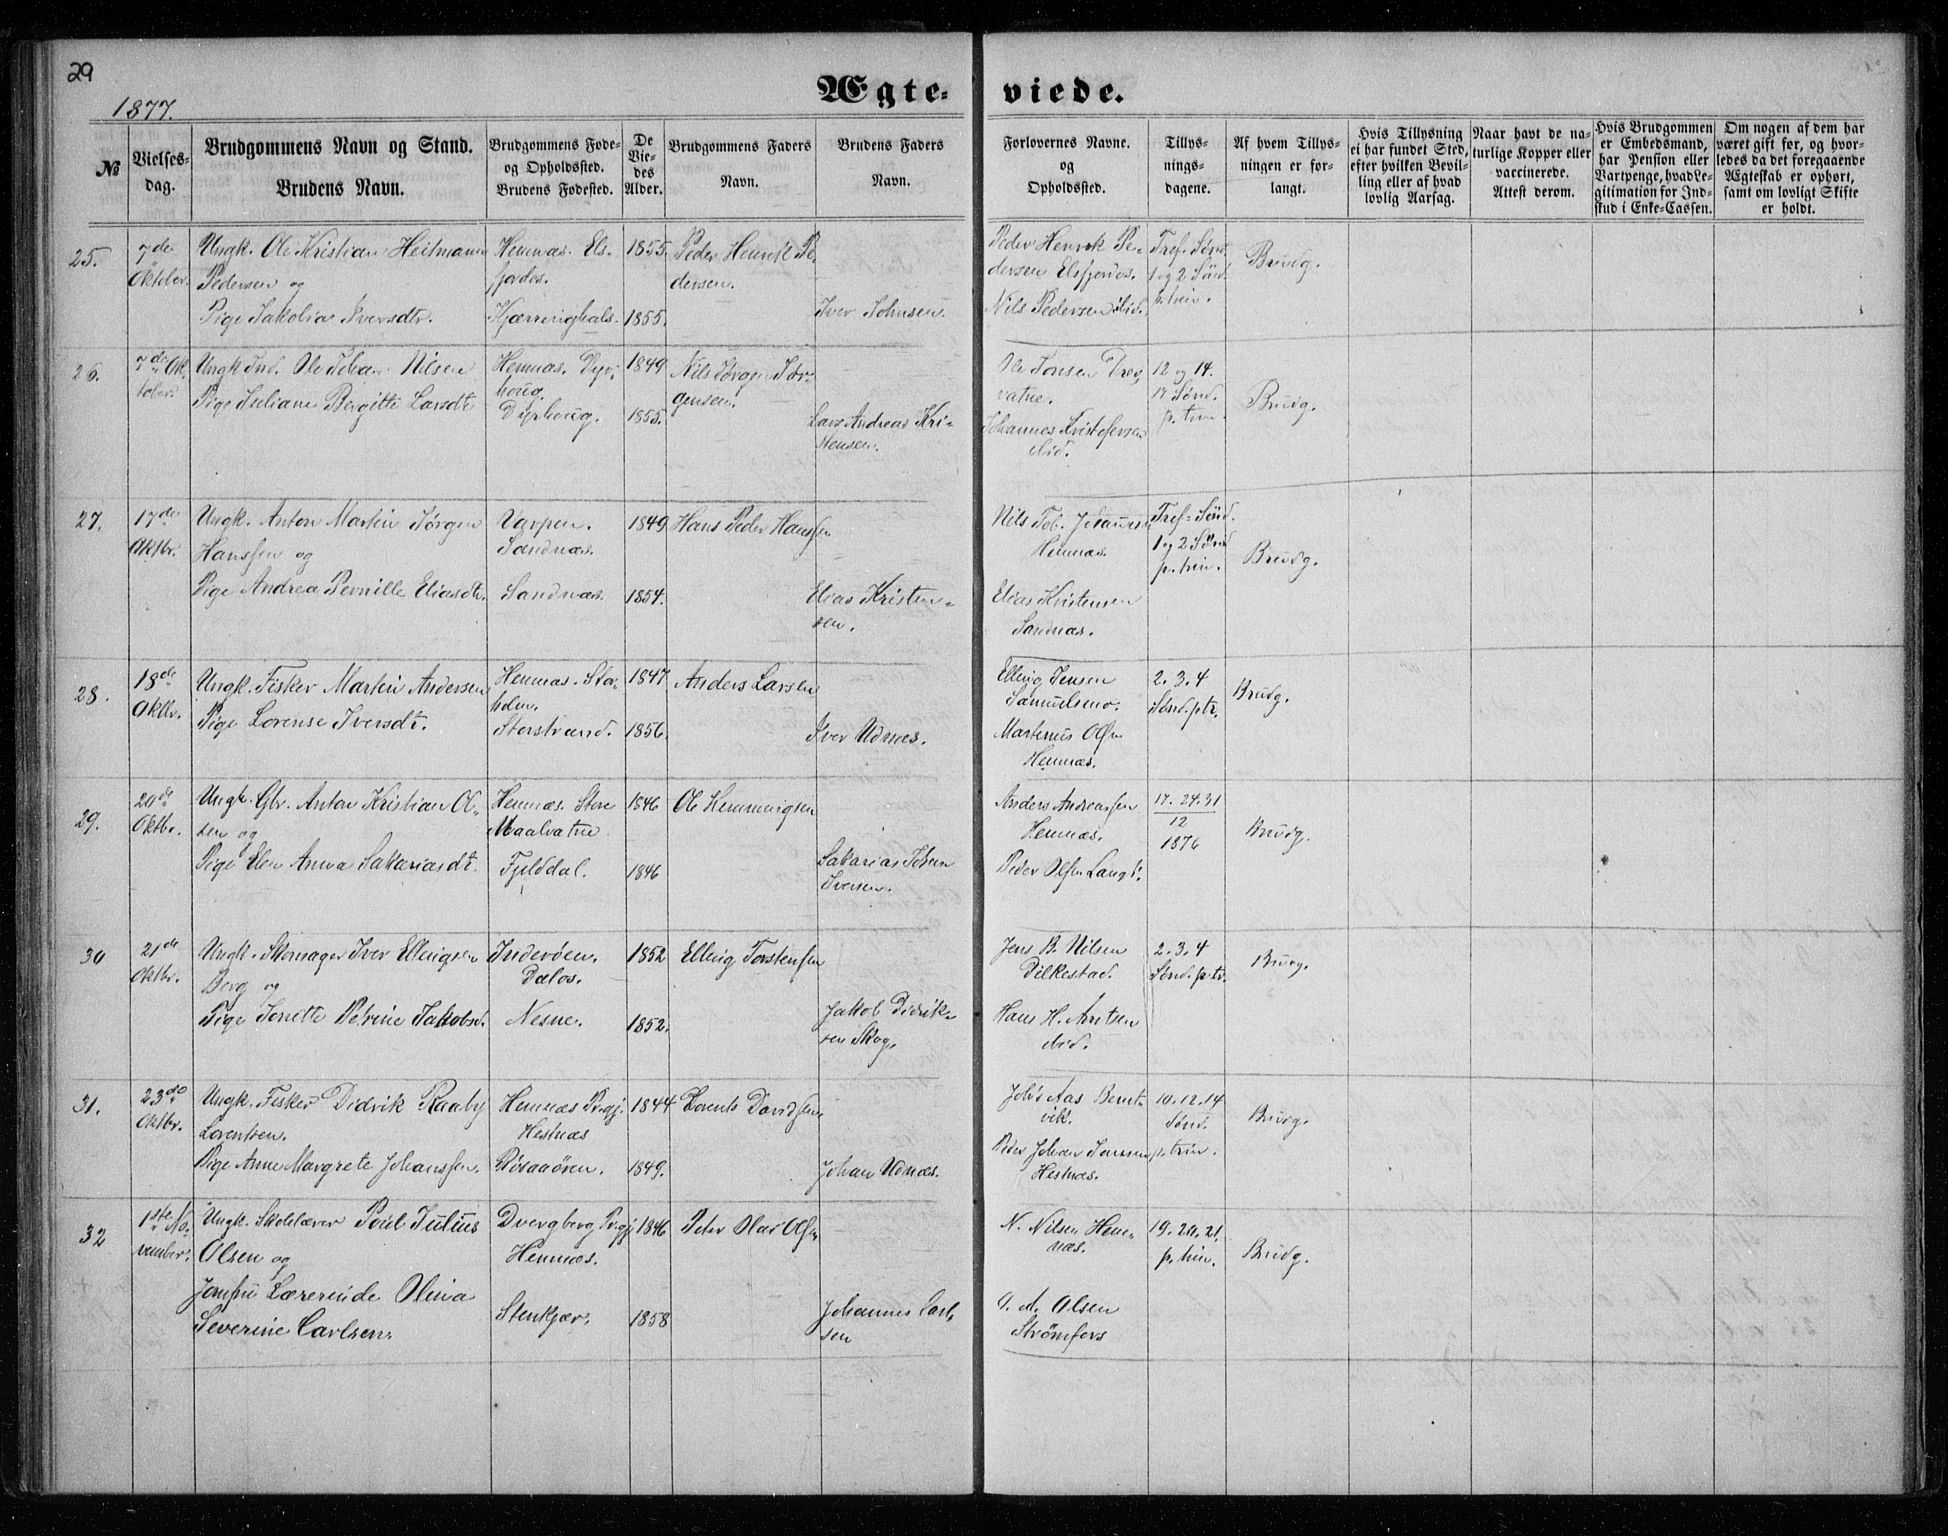 29
1877.
Ægte- viede.
№
Vielses-
dag.
Brudgommens Navn og Stand.
Brudens Navn.
Brudgommens Føde-
og Opholdssted.
Brudens Fødested.
De
Vie-
des
Alder.
Brudgommens Faders
Navn.
Brudens Faders
Navn.
Forlovernes Navne.
og
Opholdssted.
Tillys-
nings-
dagene.
Af hvem Tillys-
ningen er for-
langt.
Hvis Tillysning
ei har fundet Sted,
efter hvilken Bevil-
ling eller af hvad
lovlig Aarsag.
Naar havt de na-
turlige Kopper eller
vaccinerede.
Attest derom.
Hvis Brudgommen
er Embedsmand,
har Pension eller
Vartpenge, hvad Le-
gitimation for Ind-
skud i Enke-Cassen.
Om nogen af dem har
været gift før, og hvor-
ledes da det foregaaende
Ægteskab er ophørt,
samt om lovligt Skifte
er holdt.
25.
7de
Oktober.
Ungk. Ole Kristian Heitmann
Pedersen og
Pige Jakobia Iversdtr.
Hemnæs. Els-
fjordos.
Kjærringhals.
1855.
1855.
Peder Henrik Pe-
dersen.
Iver Johnsen.
Peder Henrik Pe-
dersen Elsfjordos.
Nils Pedersen ibid.
Tref. Sønd.
1 og 2 Sønd.
p. trin.
Brudg.
26.
7de Ok-
tober.
Ungk. Ind. Ole Johan Nilsen
Pige Juliane Bergitte Larsdt.
Hemnæs. Dyr-
houg.
Dyrhoug.
1849
1855.
Nils Jørgen Jør-
gensen.
Lars Andreas Kri-
stensen.
Ole Tonsen Drev-
vatne.
Johannes Kristofersen
ibid.
12 og 14.
17 Sønd.
p. trin.
Brudg.
27.
17de
Oktbr.
Ungk. Anton Martin Jørgen
Hanssen og
Pige Andrea Pernille Eliasdt.
Varpen.
Sandnæs.
Sandnæs.
1849
1854.
Hans Peder Hanssen
Elias Kristen-
sen.
Nils Tob. Johansen
Hemnæs.
Elias Kristensen
Sandnæs.
Tref. Sønd.
1 og 2 Sønd
p. trin.
Brudg.
28.
18de
Oktbr.
Ungk. Fisker Martin Andersen
Pige Lorense Iversdt.
Hemnæs. Stor-
holm.
Storstrand.
1847
1856.
Anders Larsen
Iver Udnæs.
Elling Jensen
Samuelsmo.
Martinus Olsen
Hemnæs.
2. 3. 4
Sønd. p tr.
Brudg.
29.
20de
Oktbr.
Ungk. Gbr. Anton Kristian Ol-
sen og
Pige Elen Anna Sakariasdt.
Hemnæs. Store
Maalvatne
Fjelddal.
1846
1846
Ole Hemmingsen
Sakarias Johan
Iversen.
Anders Andreassen
Hemnæs.
Peder Olsen
17. 24. 31
12
1876
Brudg.
30
21de
Oktbr.
Ungk. Skomager Iver Ellingsen
Berg og
Pige Jonette Petrine Jakobsd.
Inderøen.
Dalos.
Nesne.
1852
1852.
Elling Torstensen
Jakob Didrik-
sen Skog.
Jens B. Nilsen
Dilkestad.
Hans H. Arntsen
ibid.
2. 3. 4
Sønd. p. tr.
Brudg.
31.
23de
Oktbr.
Ungk. Fisker Didrik Raaby
Lorentsen.
Pige Anne Margrete Johanssen.
Hemnæs Prgj.
Hestnæs
Røsaaøren.
1844
1849.
Lorents Davidsen
Johan Udnæs.
Johs Aas Bernt-
vik.
Peder Johan Jonssen
Hestnæs.
10. 12. 14
Sønd.
p. trin.
Brudg.
32
1ste No-
vember.
Ungk. Skolelærer Poul Julius
Olsen og
Jomfru Lærerinde Olina
Severine Carlsen.
Dvergberg Prgj
Hemnæs.
Stenkjær.
1846
1858
Peter Olai Olsen
Johannes Carl-
sen
N. Nilsen Hem-
næs.
O. A. Olsen
Strømfors
19. 20. 21.
p. trin.
Brudg.